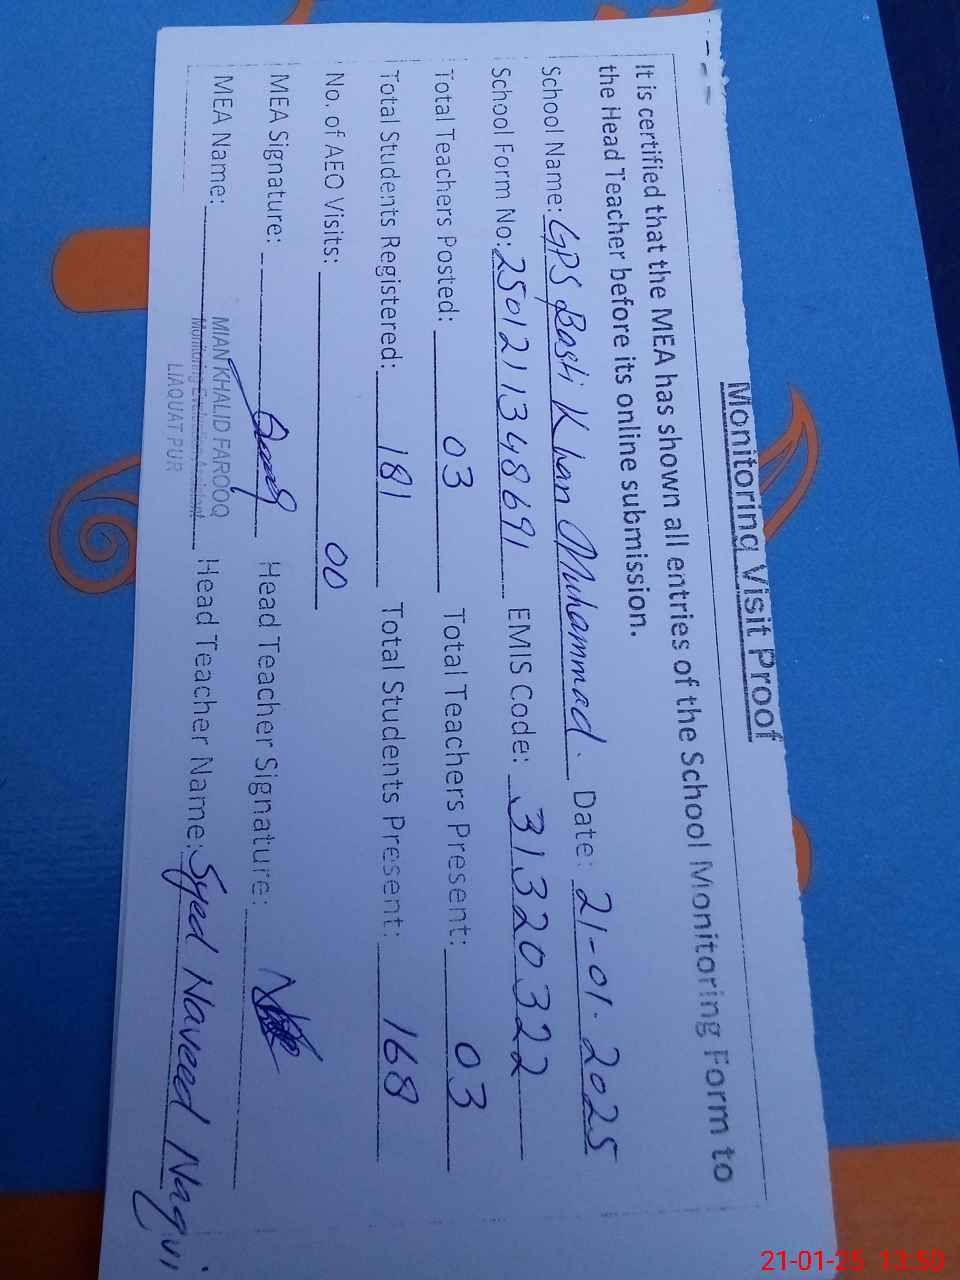 Monitoring Visit Proof
It is certified that the MEA has shown all entries of the School Monitoring Form to
the Head Teacher before its online submission.
School Name: GPS Basti Khan Muhammad. Date: 21-01-2025
School Form No: 2501211348691 EMIS Code: 31320322
Total Teachers Posted: 03 Total Teachers Present: 03
Total Students Registered: 181 Total Students Present: 168
No. of AEO Visits: 00
MEA Signature: Head Teacher Signature:
MEA Name: MIAN KHALID FAROOQ Head Teacher Name: Syed Naveed Naqvi
Monitoring Evaluation Assistant
LIAQUAT PUR
21-01-25 13:50